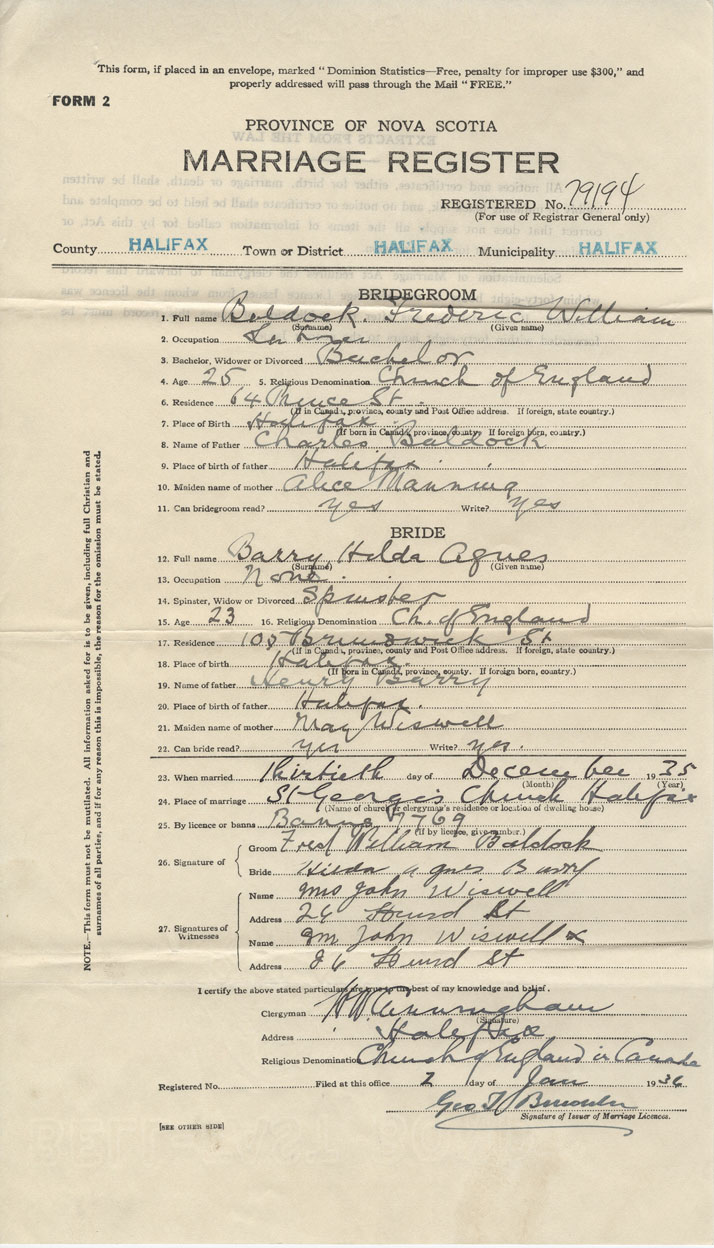 This form, if placed in an envelope, marked "Dominion Statistics—Free, penalty for improper use $300," and
properly addressed will pass through the Mail "FREE."
FORM 2
PROVINCE OF NOVA SCOTIA
MARRIAGE REGISTER
REGISTERED No. 79194
(For use of Registrar General only)
County HALIFAX Town or District HALIFAX Municipality HALIFAX
BRIDEGROOM
1. Full name Baldock. Frederic William
(Surname) (Given name)
2. Occupation
3. Bachelor, Widower or Divorced Bachelor
4. Age 25 5. Religious Denomination Church of England
6. Residence 64 Prince St.
(If in Canada, province, county and Post Office address. If foreign, state country.)
7. Place of Birth Halifax
(If born in Canada, province, county. If foreign born, country.)
8. Name of Father Charles Baldock
9. Place of birth of father Halifax
10. Maiden name of mother Alice Manning
11. Can bridegroom read? yes Write? yes
BRIDE
12. Full name Barry Hilda Agnes
(Surname) (Given name)
13. Occupation None
14. Spinster, Widow or Divorced Spinster
15. Age 23 16. Religious Denomination Ch. of England
17. Residence 105 Brunswick St
(If in Canada, province, county and Post Office address. If foreign, state country.)
18. Place of birth Halifax.
(If born in Canada, province, county. If foreign born, country.)
19. Name of father Henry Barry
20. Place of birth of father Halifax.
21. Maiden name of mother May Wiswell
22. Can bride read? yes Write? yes.
23. When married thirtieth day of December 1935
(Month) (Year)
24. Place of marriage St Georges Church Halifax
(Name of church or clergyman's residence or location of dwelling house)
25. By licence or banns Banns 7769
(If by licence, give number.)
26. Signature of
Groom Fred William Baldock
Bride Hilda Agnes Barry
27. Signatures of Witnesses
Name Mrs John Wiswell
Address 26 St
Name John Wiswell
Address 26 St
I certify the above stated particulars are true to the best of my knowledge and belief.
Clergyman Cunningham
(Signature)
Address Halifax
Religious Denomination Church of England in Canada
Registered No. Filed at this office 2 day of Jan 1936
Geo
Signature of Issuer of Marriage Licences.
[SEE OTHER SIDE]
NOTE.—This form must not be mutilated. All information asked for is to be given, including full Christian and
surnames of all parties, and if for any reason this is impossible, the reason for the omission must be stated.